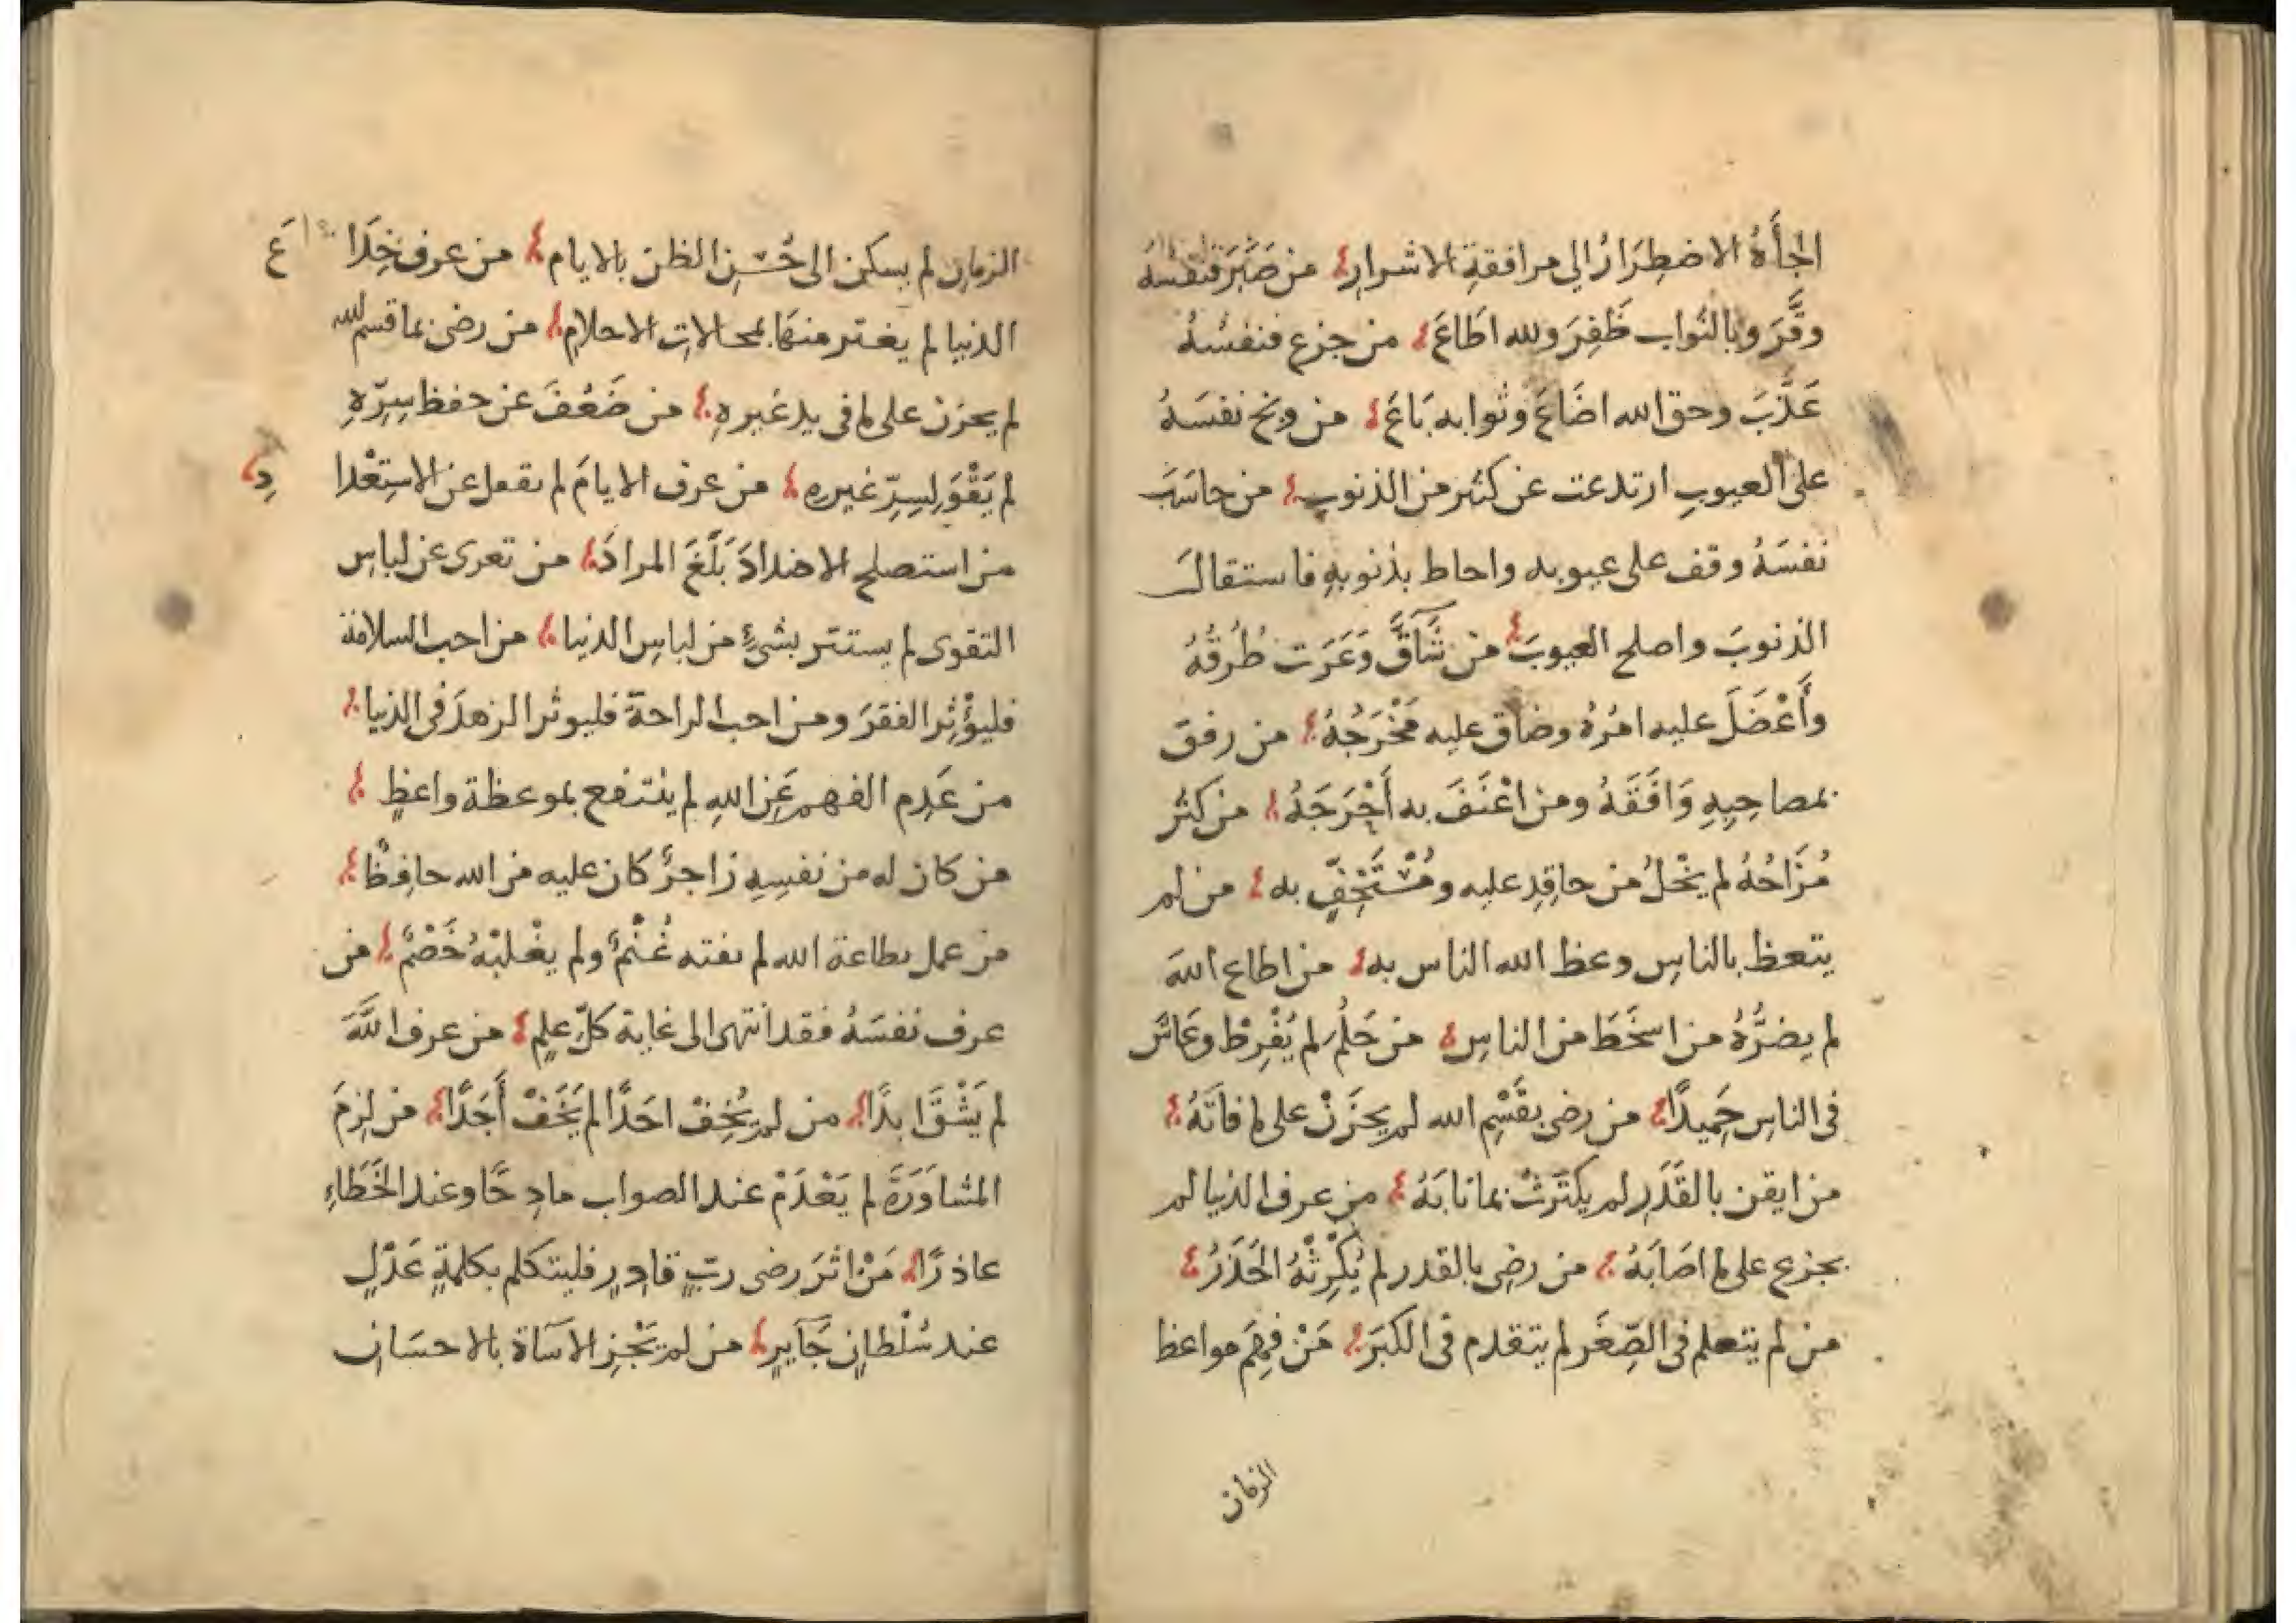 الجأهُ الاضطِرَارُ الى مرافقةِ الاشرارِ من صَبَرَ فنفسَهُ
وقَّرَ وبالثواب ظَفِرَ ولله اطَاعَ من جزع فنفسَهُ
عَذَّبَ وحق الله اضَاعَ وثوابه بَاعَ من وبخ نفسَهُ
على العيوبِ ارتدعت عن كثير من الذنوبِ من حاسَبَ
نفسَهُ وقف على عيوبه واحاط بذنوبهِ فاستقال
الذنوبَ واصلح العيوبَ من شَاقَّ وَعَرَت طُرقُهُ
وأَعْضَلَ عليه امْرُهُ وضاق عليه مَخْرَجُهُ من رفق
بمصاحِبِهِ وَافَقَهُ ومن اعْنَفَ به أَحْرَجَهُ من كثُر
مُزَاحُهُ لم يخْلُ من حاقِدٍ عليه ومُسْتَخِفٍّ به من لم
يتعظ بالناسِ وعظ الله الناس به من اطاع اللهَ
لم يضرُّهُ من اسخَطَ من الناسِ من حَلُمَ لم يُفْرِطْ وعَاشَ
فى الناسِ حَمِيدًا من رضى بقَسْمِ الله لم يحزَنْ على ما فاتَهُ
من ايقن بالقَدَرِ لم يكتَرَثْ بما نابَهُ من عرف الدنيا لم
يجزع على ما اصَابَهُ من رضِى بالقدر لم يُكْرِثْهُ الحَذَرُ
من لم يتعلم فى الصِّغَر لم يتقدم فى الكبَرِ مَنْ فهِمَ مواعظ
الزمان
الزمانِ لم يسكن الى حُسْنِ الظن بالايام من عرف خِدَاعَ
الدنيا لم يغتر منها بمحالاتِ الاحلامِ من رضى بما قسم لله
لم يحزن على ما فى يد غيرهِ من ضَعُفَ عن حفظ سِرِّهِ
لم يَقْوَ لِسِرِّ غيرهِ من عرف الايامَ لم يغفل عن الاستِعْدادِ
من استصلح الاضدادَ بَلَغَ المرادَ من تعرى عن لباسِ
التقوى لم يستتر بشئٍ من لباسِ الدنيا من احب السلامة
فليؤْثِر الفقرَ ومن احب الراحة فليوثر الزهدَ فى الدنيا
من عَدِم الفهم عَنِ اللهِ لم ينتفع بموعظة واعظٍ
من كان له من نفسِهِ زاجرٌ كان عليه من الله حافِظٌ
من عمل بطاعة الله لم يفته غُنْمٌ ولم يغْلبْهُ خَصْمٌ من
عرف نفسَهُ فقد انتهى الى غاية كلِّ علمٍ من عرف اللَّهَ
لم يَشْقَ ابدًا من لم يُخِفْ احَدًا لم يَخَفْ أَحَدًا من لزِمَ
المشاوَرَةَ لم يَعْدَمْ عند الصواب مادِحًا وعند الخَطَاءِ
عاذرًا مَنْ اثَرَ رضى ربٍّ قادِرٍ فليتكلم بكلمةٍ عَدْلٍ
عند سُلْطانٍ جَآيرٍ من لم يَجْزِ الاسآة بالاحسَانِ